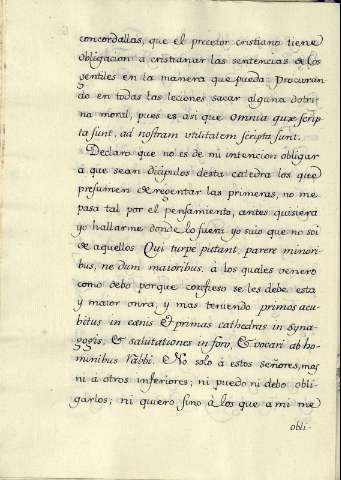 concordallas, que el precetor cristiano tiene
obligacion a cristianar las sentencias de los
gentiles en la manera que pueda procuran
do en todas las leciones sacar alguna dotri
na moral, pues es asi que omnia quæ scrip
ta sunt, ad nostram utilitatem scripta sunt.
Declaro que no es de mi intencion obligar
a que sean dicipulos desta catedra los que
presumen de regentar las primeras, no me
pasa tal por el pensamiento, antes quisiera
yo hallarme donde lo fuera yo suio que no soi
de aquellos Qui turpe putant, parere minori
bus, ne dum maioribus, à los quales venero
como debo porque confieso se les debe esta
y maior onra, y mas teniendo primos acu
bitus in cœnis & primas cathedras in synag
gogis, & salutationes in foro, & vocari ab ho
minibus Rabbi. No solo à estos señores, mas
ni a otros inferiores; ni puedo ni debo obli
garlos; ni quiero sino à los que a mi me
obli-